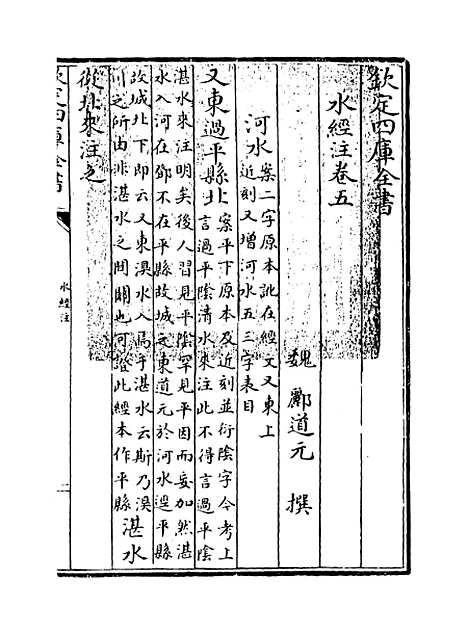 欽定四庫全書
水經注卷五
魏 酈道元 撰
河水案二字原本訛在經文又東上
近刻又增河水五三字表目
又東過平縣北案平下原本及近刻並衍陰字今考上
言過平陰清水來注此不得言過平陰
湛水來注明矣後人習見平陰罕見平因而妄加然湛
水入河在鄧不在平縣故城之東道元於河水逕平縣
故城北下即云又東溴水入焉于湛水云斯乃溴
川之所由非湛水之間關也可證此經本作平縣
湛水
從北來注之
欽定四庫全書
水經注